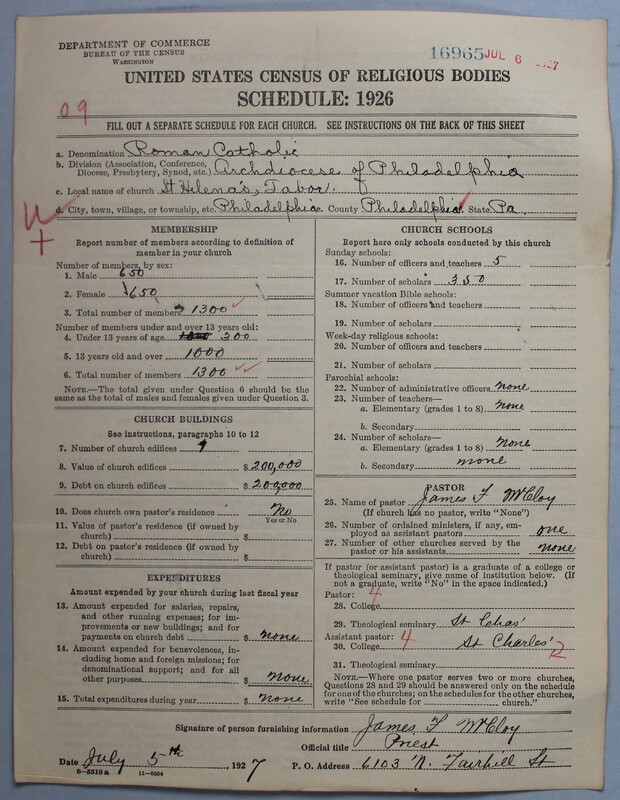 DEPARTMENT OF COMMERCE
BUREAU OF THE CENSUS
WASHINGTON
16965 JUL 6
UNITED STATES CENSUS OF RELIGIOUS BODIES
SCHEDULE: 1926
09
FILL OUT A SEPARATE SCHEDULE FOR EACH CHURCH. SEE INSTRUCTIONS ON THE BACK OF THIS SHEET
a. Denomination Roman Catholic
b. Division (Association, Conference, Diocese, Presbytery, Synod, etc.) Archdiocese of Philadelphia
c. Local name of church St Helena's, Tabor.
d. City, town, village, or township, etc. Philadelphia County Philadelphia State Pa.
MEMBERSHIP
Report number of members according to definition of
member in your church
Number of members, by sex:
1. Male 650
2. Female 650
3. Total number of members 1300
Number of members under and over 13 years old:
4. Under 13 years of age 300
5. 13 years old and over 1000
6. Total number of members 1300
NOTE.—The total given under Question 6 should be
the same as the total of males and females given under Question 3.
CHURCH BUILDINGS
See instructions, paragraphs 10 to 12
7. Number of church edifices 1
8. Value of church edifices $ 200,000
9. Debt on church edifices $ 200,000
10. Does church own pastor's residence No
Yes or No
11. Value of pastor's residence (if owned by
church) $
12. Debt on pastor's residence (if owned by
church) $
EXPENDITURES
Amount expended by your church during last fiscal year
13. Amount expended for salaries, repairs,
and other running expenses; for im-
provements or new buildings; and for
payments on church debt $ none
14. Amount expended for benevolences, in-
cluding home and foreign missions; for
denominational support; and for all
other purposes $ none
15. Total expenditures during year $ none
CHURCH SCHOOLS
Report here only schools conducted by this church
Sunday schools:
16. Number of officers and teachers 5
17. Number of scholars 350
Summer vacation Bible schools:
18. Number of officers and teachers
19. Number of scholars
Week-day religious schools:
20. Number of officers and teachers
21. Number of scholars
Parochial schools:
22. Number of administrative officers none
23. Number of teachers—
a. Elementary (grades 1 to 8) none
b. Secondary
24. Number of scholars—
a. Elementary (grades 1 to 8) none
b. Secondary none
PASTOR
25. Name of pastor James F McCloy
(If church has no pastor, write "None")
26. Number of ordained ministers, if any, em-
ployed as assistant pastors one
27. Number of other churches served by the
pastor or his assistants none
If pastor (or assistant pastor) is a graduate of a college or
theological seminary, give name of institution below. (If
not a graduate, write "No" in the space indicated.)
Pastor: 4
28. College
29. Theological seminary St
Assistant pastor: 4
30. College St Charles'
31. Theological seminary
NOTE.—Where one pastor serves two or more churches,
Questions 28 and 29 should be answered only on the schedule
for one of the churches; on the schedules for the other churches,
write "See schedule for church."
Signature of person furnishing information James F McCloy
Official title Priest
Date July 5th, 1927 P. O. Address 6103 N. Fairhill St
6—5518a 11—9054